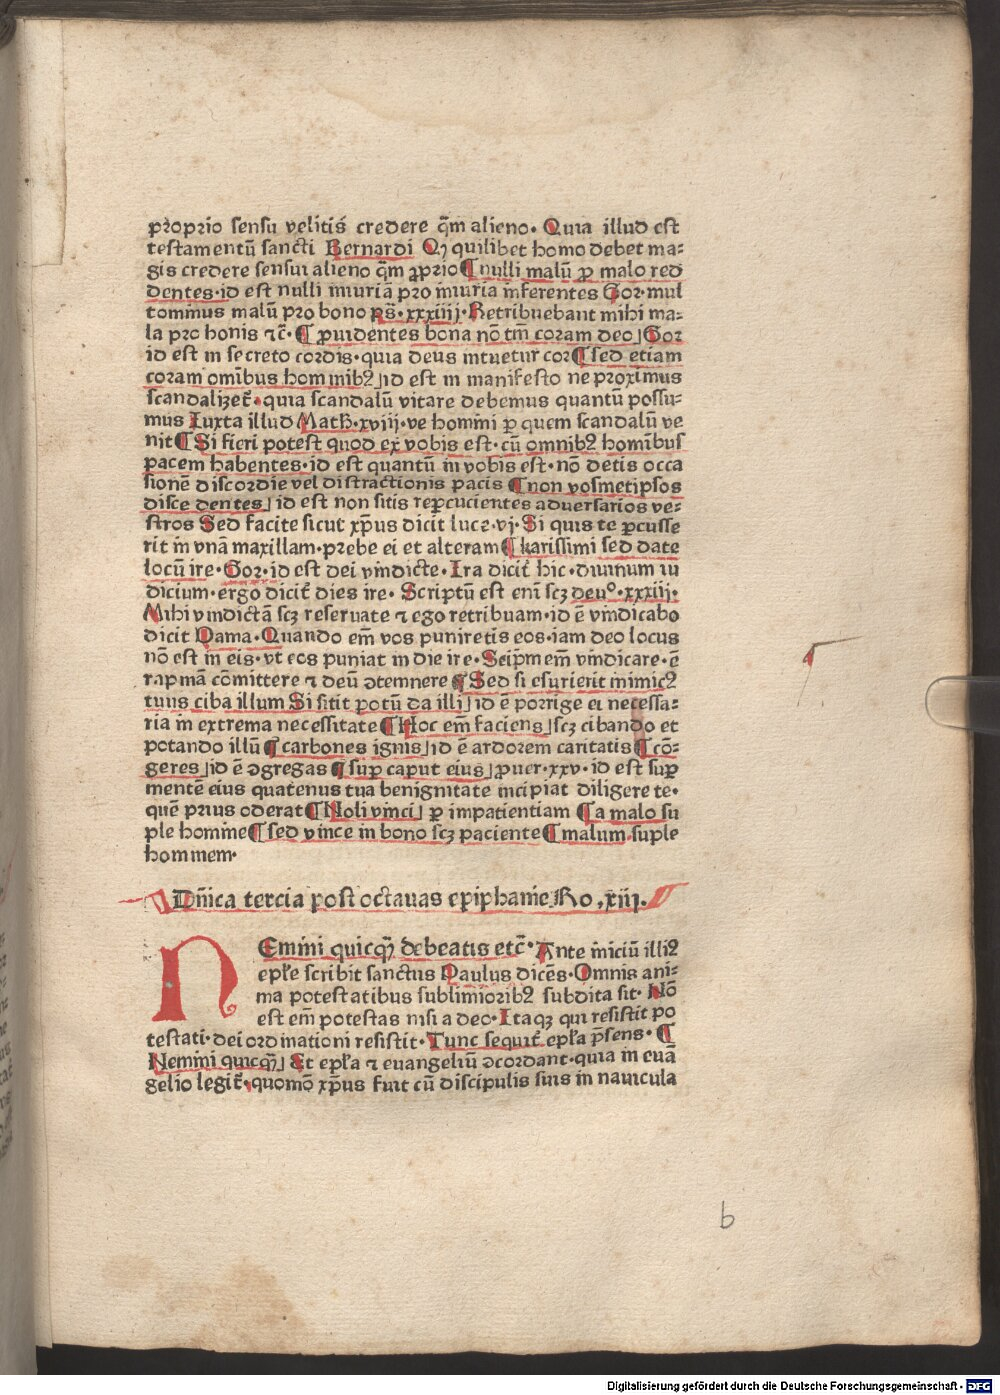 proprio sensu velitis credere q̃m alieno. Quia illud est
testamentũ sancti Bernardi Qꝫ quilibet homo debet ma⸗
gis credere sensui alieno q̃m ꝓprio ¶ nulli malũ ꝓ malo red
dentes·id est nulli iniuriã pro iniuria inferentes Gor·mul
tominus malũ pro bono ps̃·xxxiiij·Retribuebant mihi ma⸗
la pro bonis ⁊c̃·¶ ꝓuidentes bona nõ tm̃ coram deo⌋ Gor
id est in secreto cordis·quia deus intuetur cor ¶ sed etiam
coram omĩbus hominibꝰ⌋ id est in manifesto ne proximus
scandalizet̃·quia scandalũ vitare debemus quantũ possu⸗
mus Iuxta illud Math̃·xviij·ve homini ꝑ quem scandalũ ve
nit ¶ Si fieri potest quod ex vobis est·cũ omnibꝰ homĩbus
pacem habentes·id est quantũ in vobis est·nõ detis occa
sionẽ discordie vel distractionis pacis ¶ non vosmetipsos
disce dentes⌋ id est non sitis reꝑcucientes aduersarios ve⸗
stros Sed facite sicut xp̃us dicit luce·vj·Si quis te ꝑcusse
rit in vnã maxillam·prebe ei et alteram ¶ karissimi sed date
locũ ire·Gor·id est dei vindicte·Ira dicit̃ hic·diuinum iu
dicium·ergo dicit̃ dies ire·Scriptũ est eni̅ scꝫ deu°·xxxiij·
Mihi vindictã scꝫ reseruate ⁊ ego retribuam·id ẽ vindicabo
dicit Dama·Quando em̃ vos puniretis eos·iam deo locus
nõ est in eis·vt eos puniat in die ire·Seip̃m em̃ vindicare·ẽ
rapinã cõmittere ⁊ deũ ꝯtemnere ¶ Sed si esurierit inimicꝰ
tuus ciba illum Si sitit potũ da illi⌋ id ẽ porrige ei necessa⸗
ria in extrema necessitate ¶ Hoc em̃ faciens⌋ scꝫ cibando et
potando illũ ¶ carbones ignis⌋ id ẽ ardorem caritatis ¶ cõ⸗
geres⌋ id ẽ ꝯgregas ¶ suꝑ caput eius⌋ ꝓuer·xxv·id est suꝑ
mentẽ eius quatenus tua benignitate incipiat diligere te·
quẽ prius oderat ¶ Noli vinci⌋ ꝑ impatientiam ¶ a malo su
ple homine ¶ sed vince in bono scꝫ paciente ¶ malum·suple
hominem·
Dñica tercia post octauas epiphanie Ro.xiij.
NEmini quicqꝫ̃ debeatis etc̃·Ante iniciũ illiꝰ
ep̃le scribit sanctus Paulus dicẽs·Omnis ani⸗
ma potestatibus sublimioribꝰ subdita sit·Nõ
est em̃ potestas nisi a deo·Itaqꝫ qui resistit po
testati·dei ordinationi resistit·Tunc sequit̃ ep̃la p̃sens·¶
Nemini quicqꝫ̃⌋ Et ep̃la ⁊ euangeliũ ꝯcordant·quia in euã
gelio legit̃·quomõ xp̃us fuit cũ discipulis suis in nauicula
b
Digitalisierung gefördert durch die Deutsche Forschungsgemeinschaft - DFG